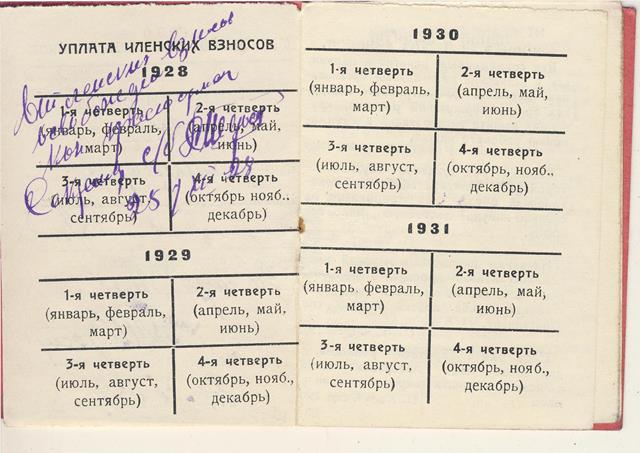 УПЛАТА ЧЛЕНСКИХ ВЗНОСОВ
1928
1-я четверть
(январь, февраль,
март)
2-я четверть
(апрель, май,
июнь)
3-я четверть
(июль, август,
сентябрь)
4-я четверть
(октябрь нояб..
декабрь)
От членских взносов
освобожден
25/XII 28
1929
1-я четверть
(январь, февраль,
март)
2-я четверть
(апрель, май,
июнь)
3-я четверть
(июль, август,
сентябрь)
4-я четверть
(октябрь, нояб.,
декабрь)
1930
1-я четверть
(январь, февраль,
март)
2-я четверть
(апрель, май,
июнь)
3-я четверть
(июль, август,
сентябрь)
4-я четверть
(октябрь, нояб.,
декабрь)
1931
1-я четверть
(январь. февраль,
март)
2-я четверть
(апрель, май,
июнь)
3-я четверть
(июль, август,
сентябрь)
4-я четверть
(октябрь, нояб.,
декабрь)